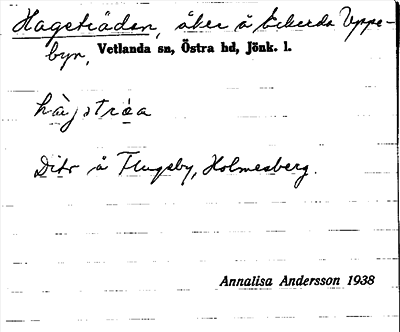 Hagsträdan, åker å Ekerda Uppe-
byn, Vetlanda sn, Östra hd, Jönk. l.
Dito å Flugeby, Holmesberg.
Annalisa Andersson 1938